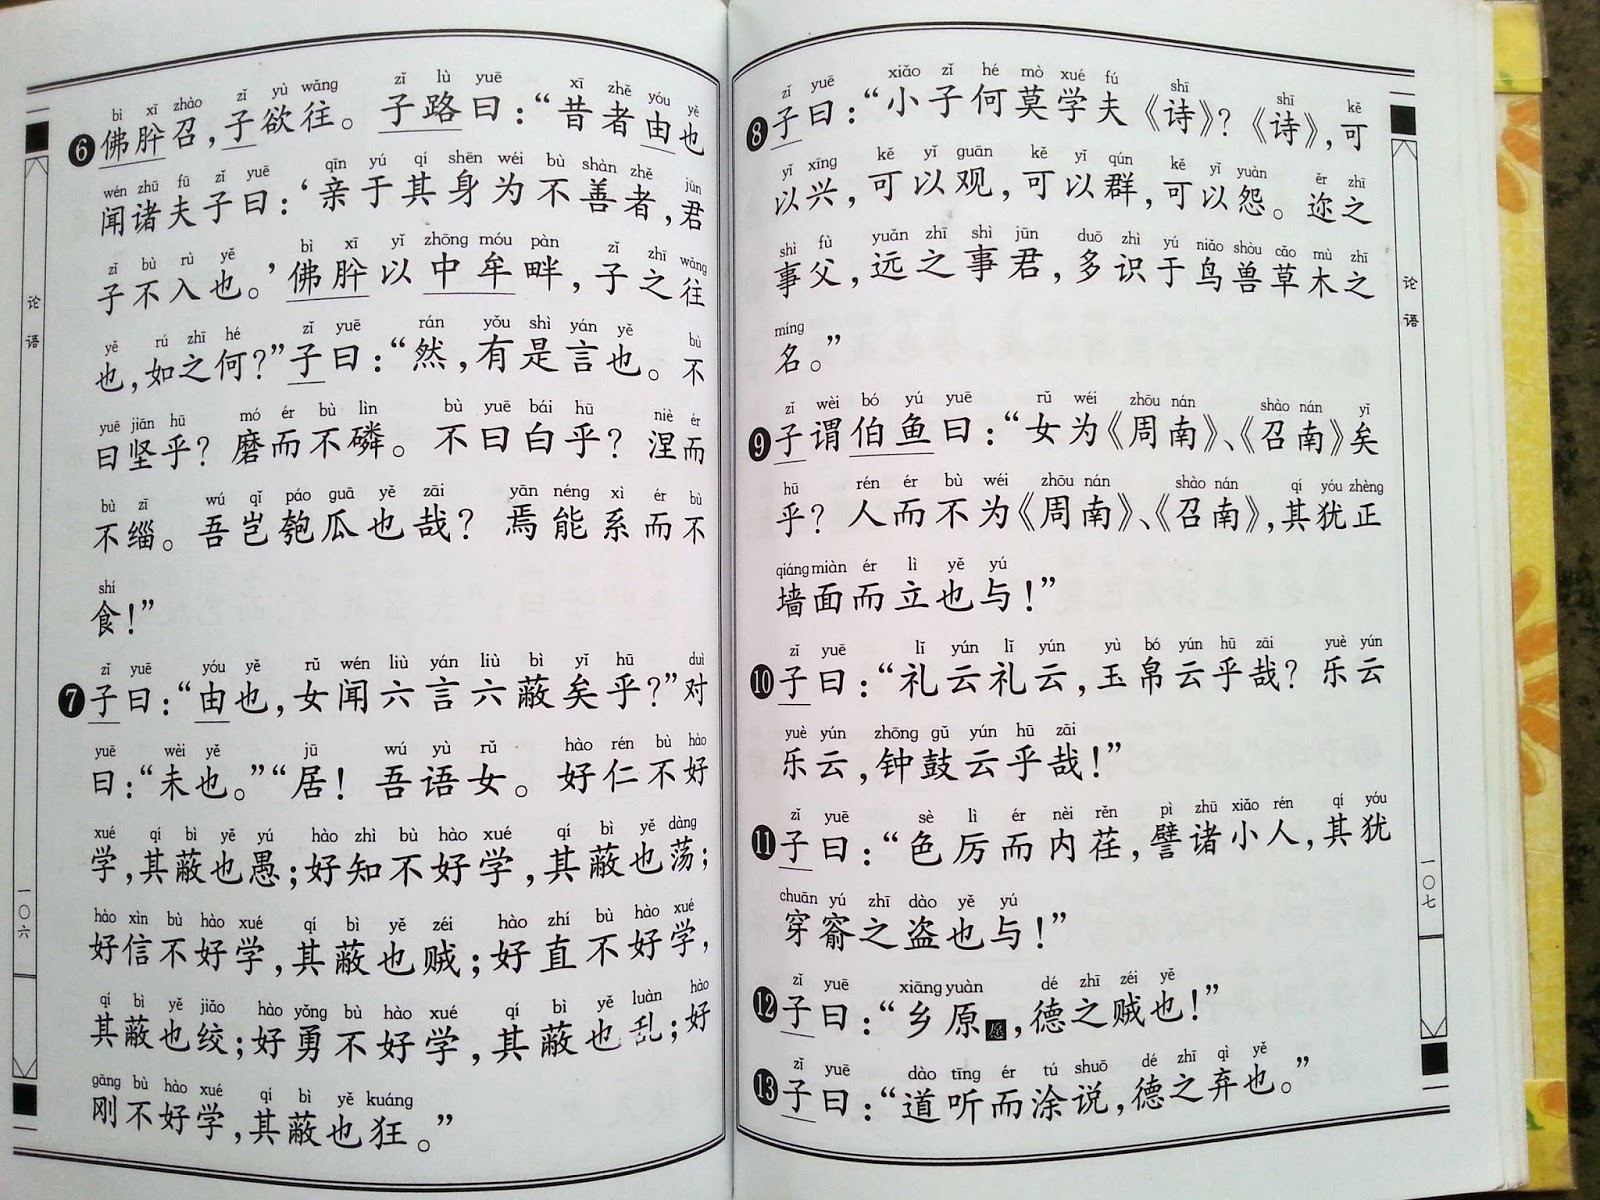 bì xī zhào zǐ yù wǎng zǐ lù yuē xī zhě yóu yě
6 佛肸召，子欲往。子路曰：“昔者由也
wén zhū fū zǐ yuē qīn yú qí shēn wéi bù shàn zhě jūn
闻诸夫子曰：‘亲于其身为不善者，君
zǐ bù rù yě bì xī yǐ zhōng móu pàn zǐ zhī wǎng
子不入也。’佛肸以中牟畔，子之往
yě rú zhī hé zǐ yuē rán yǒu shì yán yě bù
也，如之何？”子曰：“然，有是言也。不
yuē jiān hū mó ér bù lìn bù yuē bái hū niè ér
曰坚乎？磨而不磷。不曰白乎？涅而
bù zī wú qǐ páo guā yě zāi yān néng xì ér bù
不缁。吾岂匏瓜也哉？焉能系而不
shí
食！”
zǐ yuē yóu yě rǔ wén liù yán liù bì yǐ hū duì
7 子曰：“由也，女闻六言六蔽矣乎？”对
yuē wèi yě jū wú yù rǔ hào rén bù hào
曰：“未也。”“居！吾语女。好仁不好
xué qí bì yě yú hào zhì bù hào xué qí bì yě dàng
学，其蔽也愚；好知不好学，其蔽也荡；
hào xìn bù hào xué qí bì yě zéi hào zhí bù hào xué
好信不好学，其蔽也贼；好直不好学，
qí bì yě jiǎo hào yǒng bù hào xué qí bì yě luàn hào
其蔽也绞；好勇不好学，其蔽也乱；好
gāng bù hào xué qí bì yě kuáng
刚不好学，其蔽也狂。”
论语
一〇六
zǐ yuē xiǎo zǐ hé mò xué fú shī shī kě
8 子曰：“小子何莫学夫《诗》？《诗》，可
yǐ xīng kě yǐ guān kě yǐ qún kě yǐ yuàn ěr zhī
以兴，可以观，可以群，可以怨。迩之
shì fù yuǎn zhī shì jūn duō zhì yú niǎo shòu cǎo mù zhī
事父，远之事君，多识于鸟兽草木之
míng
名。”
zǐ wèi bó yú yuē rǔ wéi zhōu nán shào nán yǐ
9 子谓伯鱼曰：“女为《周南》、《召南》矣
hū rén ér bù wéi zhōu nán shào nán qí yóu zhèng
乎？人而不为《周南》、《召南》，其犹正
qiáng miàn ér lì yě yú
墙面而立也与！”
zǐ yuē lǐ yún lǐ yún yù bó yún hū zāi yuè yún
10 子曰：“礼云礼云，玉帛云乎哉？乐云
yuè yún zhōng gǔ yún hū zāi
乐云，钟鼓云乎哉！”
zǐ yuē sè lì ér nèi rěn pì zhū xiǎo rén qí yóu
11 子曰：“色厉而内荏，譬诸小人，其犹
chuān yú zhī dào yě yú
穿窬之盗也与！”
zǐ yuē xiāng yuàn dé zhī zéi yě
12 子曰：“乡原愿，德之贼也！”
zǐ yuē dào tīng ér tú shuō dé zhī qì yě
13 子曰：“道听而涂说，德之弃也。”
论语
一〇七